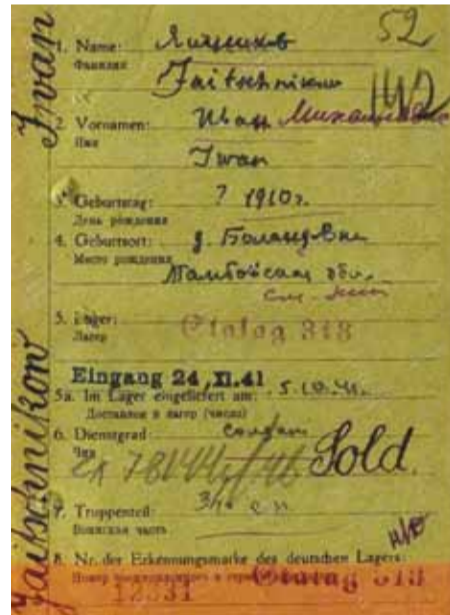 52
1. Name: Яичников
Фамилия
Jaitschnikow
142
2. Vornamen: Иван Михайлович
Имя
Iwan
3. Geburtstag: ? 1910г.
День рождения
4. Geburtsort: д.
Место рождения
Тамбовская обл.
5. Lager: Stalag 313
Лагер
Eingang 24. XI. 41
5a. Im Lager eingeliefert am: 5.10.41.
Доставлен в лагер (число)
6. Dienstgrad: солдат
Чин
Sold.
7. Truppenteil:
Воинская часть
8. Nr. der Erkennungsmarke des deutschen Lagers:
Stalag 313
12331
Jaitschnikow Iwan